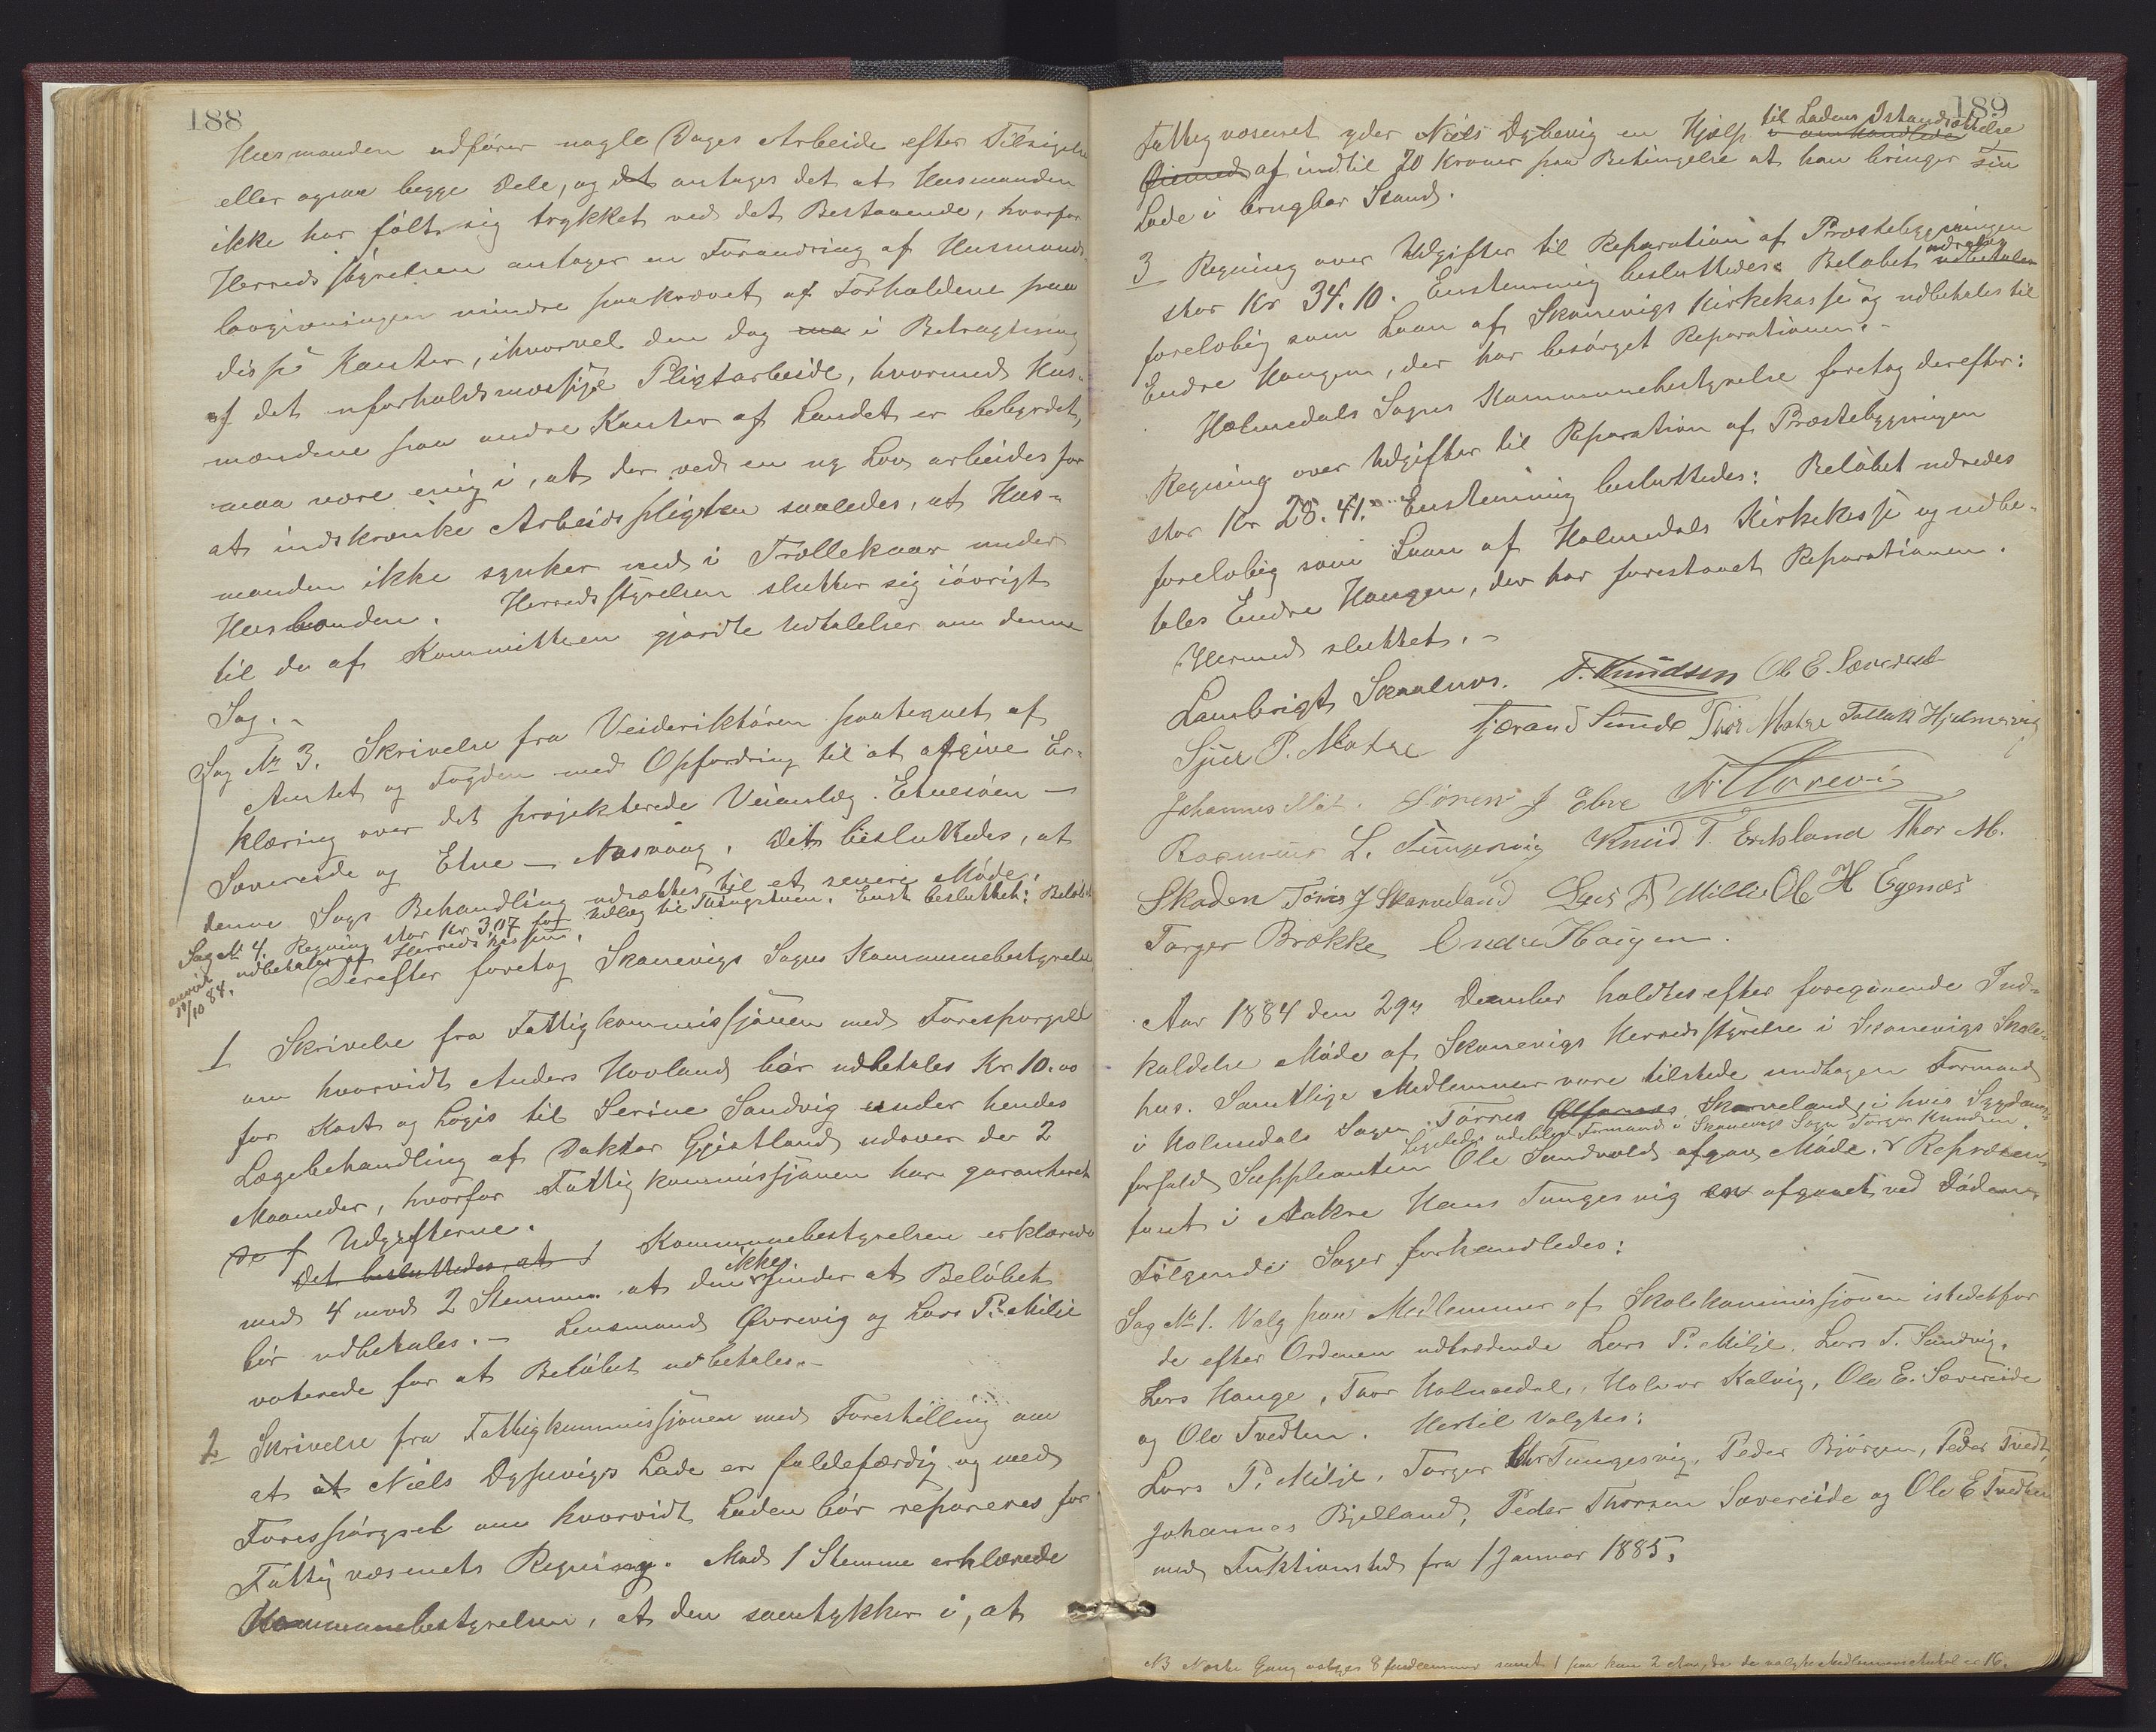 188
Husmanden udfører nogle Dages Arbeide efter Tilsigelse
eller ogsaa begge Dele, og det antages det at Husmanden
ikke har følt sig trykket ved det Bestaaende, hvorfor
Herredsstyrelsen antager en Forandring af Husmands-
lovgivningen mindre paakrævet af Forholdene paa
disse Kanter, ihvorvel den dog maa i Betragtning
af det uforholdsmæssige Pligtarbeide, hvormed Hus-
mændene paa andre Kanter af Landet er bebyrdet,
maa være enig i, at der ved en ny Lov arbeides for
at indskrænke Arbeidspligten saaledes, at Hus-
manden ikke synker ned i Trællekaar under
Husbonden. Herredsstyrelsen slutter sig iøvrigt
til de af Kommitteen gjordte Udtalelser om denne
Sag.-
Sag No 3. Skrivelse fra Veidirektøren paategnet af
Amtet og Fogden med Opfordring til at afgive Er-
klæring over det projekterede Veianlæg. Etnesøen -
Sævereide og Etne - Næsvaag. Det besluttedes, at
denne Sags Behandling udsættes til et senere Møde.
Sag No 4. Regning stor Kr 3,07 for Udlæg til Thingstuen. Enst. besluttet: Beløbet
udbetales af Herredskassen.
anvist
18/10 84.
Derefter foretog Skonevigs Sogns Kommunebestyrelse
1 Skrivelse fra Fattigkommissjonen med Forespørgsel
om hvorvidt Anders Hovland bør udbetales Kr 10.00
for Kost og Logis til Serine Sandvig under hendes
Lægebehandling af Doktor Gjestland udover de 2
Maaneder, hvorfor Fattigkommissjonen har garanteret
Udgifterne.
Det besluttedes, at Kommunebestyrelsen erklærede
med 4 mod 2 Stemmer at den ikke finder at Beløbet
bør udbetales.- Lensmand Øvrevig og Lars P. Milje
voterede for at Beløbet udbetales.-
2 Skrivelse fra Fattigkommissjonen med Forestilling om
at at Niels Dypevigs Lade er faldefærdig og med
Forespørgsel om hvorvidt Laden bør repareres for
Fattigvæsenets Regning. Mod 1 Stemme erklærede
Kommunebestyrelsen, at den samtykker i, at
189
Fattigvæsenet yder Niels Dybevig en Hjælp til Ladens Istandsættelse i omhandlede
Øiemed af indtil 20 Kroner paa Betingelse at han bringer sin
Lade i brugbar Stand.
3 Regning over Udgifter til Reparation af Præstebygningen
stor Kr 34.10. Enstemmig besluttedes: Beløbet udredes udbetales
foreløbig som Laan af Skonevigs Kirkekasse og udbetales til
Endre Haugen, der har besørget Reparationen.-
Holmedals Sogns Kommunebestyrelse foretog derefter:
Regning over Udgifter til Reparation af Præstebygningen
stor Kr 28.41. Enstemmig besluttedes: Beløbet udredes
foreløbig som Laan af Holmedals Kirkekasse og udbe-
tales Endre Haugen, der har forestaaet Reparationen.
Hermed sluttet.-
Lambrigt Skaalnes. T. Knudsen Ol E. Sævereid
Sjur P. Matre Tjerand Sunde Thor Matre Tollak Hjelmervig
Johannes Søren J Ebne
Rasmus L. Tungesvig Knud T. Eritsland Thor M.
Skaden Tøris J Skarveland Lars P Milje Ole H Egenæs
Torger Brække Endre Haugen.
Aar 1884 den 29de December holdtes efter foregaaende Ind-
kaldelse Møde af Skonevigs Herredsstyrelse i Skonevigs Skole-
hus. Samtlige Medlemmer vare tilstede undtagen Formand
i Holmedals Sogn Tørres Skarveland, i hvis Sygdoms-
Ligeledes udeblev Formand i Skonevigs Sogn Torger Knudsen.
forfald Suppleanten Ole Sundvold afgav Møde. Repræsen-
tant i Aakre Hans Tungesvig er afgaaet ved Døden.
Følgende Sager forhandledes:
Sag No 1. Valg paa Medlemmer af Skolekommissjonen istedetfor
de efter Ordenen udtrædende Lars P. Milje, Lars T. Sandvig,
Lars Hauge, Thor Holmedal, Halvor Kalvig, Ole E. Sævereide
og Ole Tvedten. Hertil valgtes:
Lars P. Milje, Torger Tungesvig, Peder Bjørgen, Peder Tvedt,
Johannes Bjelland, Peder Thorsen Sævereide og Ole E Tvedten
med Funktionstid fra 1 Januar 1885.
NB Næste Gang vælges 8 Medlemmer samt 1 paa kun 2 Aar, da de valgte Medlemmers Antal er 16.